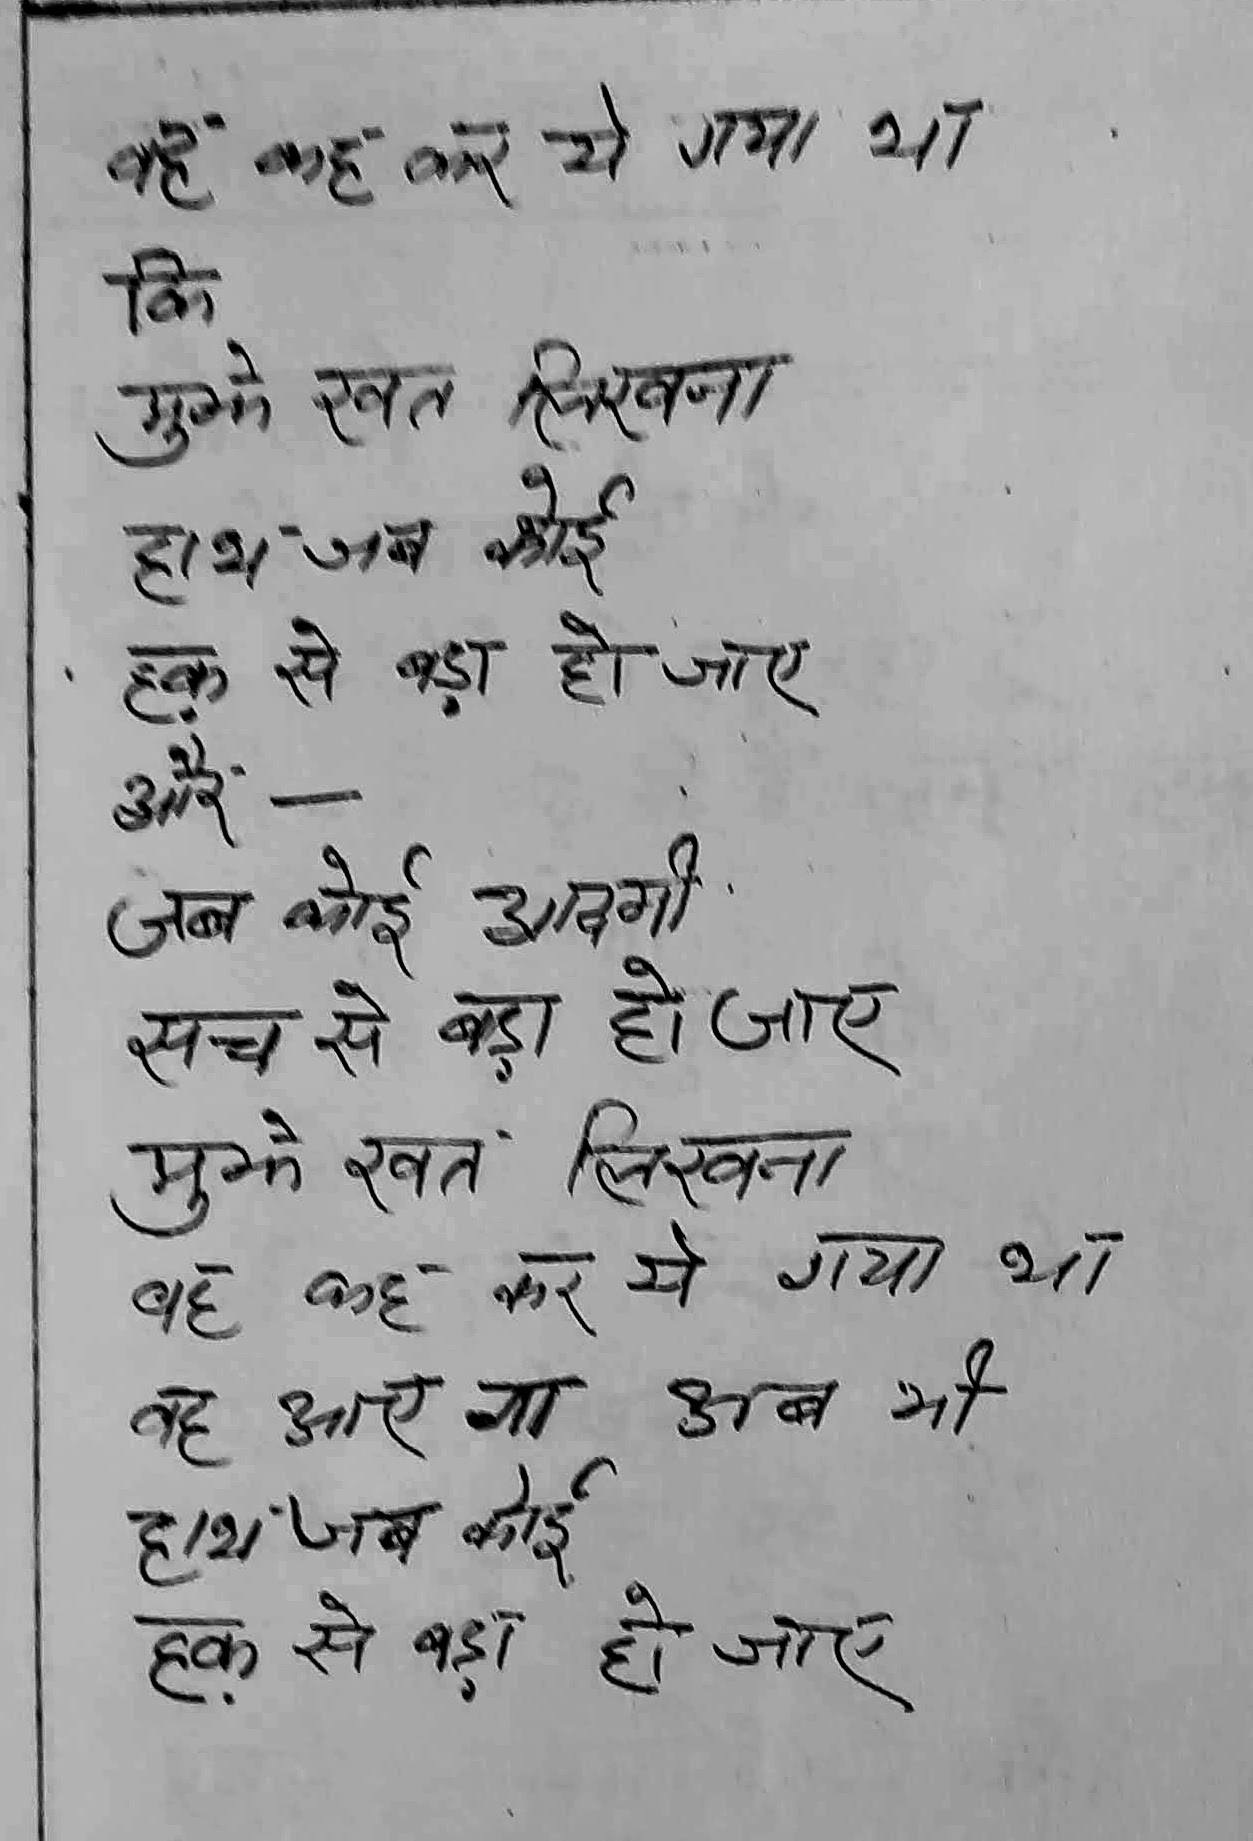 वह कह कर ये गया था
कि
मुझे ख़त लिखना
हाथ जब कोई
हक़ से बड़ा हो जाए
और —
जब कोई आदमी
सच से बड़ा हो जाए
मुझे खत लिखना
वह कह कर ये गया था
वह आए गा अब भी
हाथ जब कोई
हक़ से बड़ा हो जाए